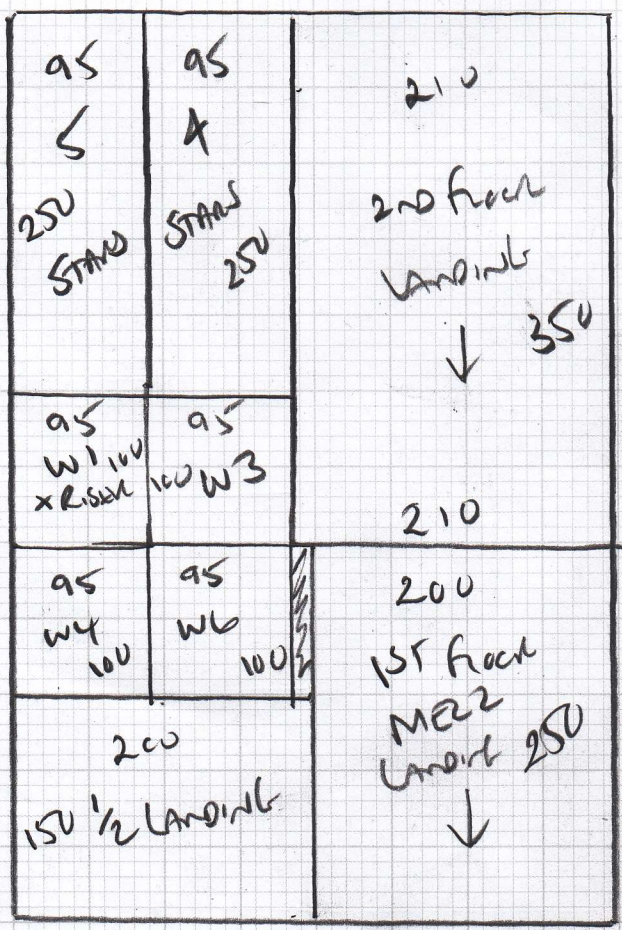 95
5
250
STAIRS
95
4
STAIRS
250
210
2ND FLOOR
LANDING
350
210
95
W1 100
X RISER
95
100 W3
95
W4
100
95
W6
100
200
1ST FLOOR
MEZZ
LANDING 250
200
150 1/2 LANDING